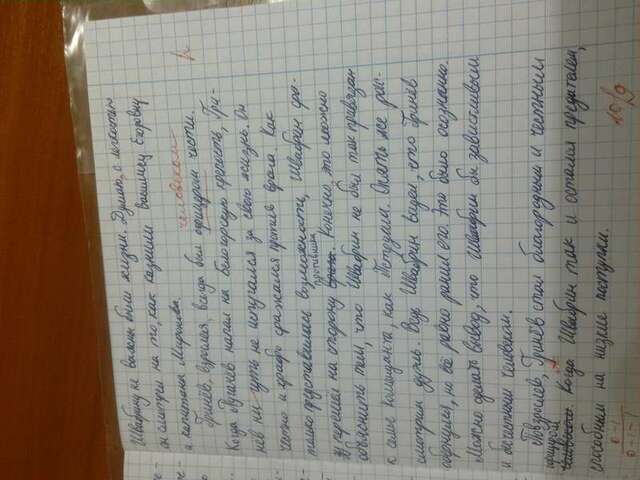 Швабрину не важны были жизни. Думаю, с легкостью
он смотрел на то, как казнили Василису Егоровну
и капитана Миронова.
человеком
Гринёв, взрослея, всегда был офицером чести.
Когда Пугачев напал на Белогорскую крепость, Гри-
нёв ни чуть не испугался за свою жизнь. Он
честно и храбро сражался против врага. Как
только представилась возможность, Швабрин сра-
зу перешел на сторону врага. Конечно, это можно
противника
объяснить тем, что Швабрин не был так привязан
к семье коменданта, как Петруша. Опять же рас-
смотрим дуэль. Ведь Швабрин видел, что Гринёв
обернулся, но всё равно ранил его. Это было осознанно.
Можно сделать вывод, что Швабрин бы завистливым
и бесчестным человеком.
Повзрослев, Гринёв стал благородным и честным
офицером
человеком. Когда Швабрин так и остался предателем,
способным на низкие поступки.
0-1
0-1-1